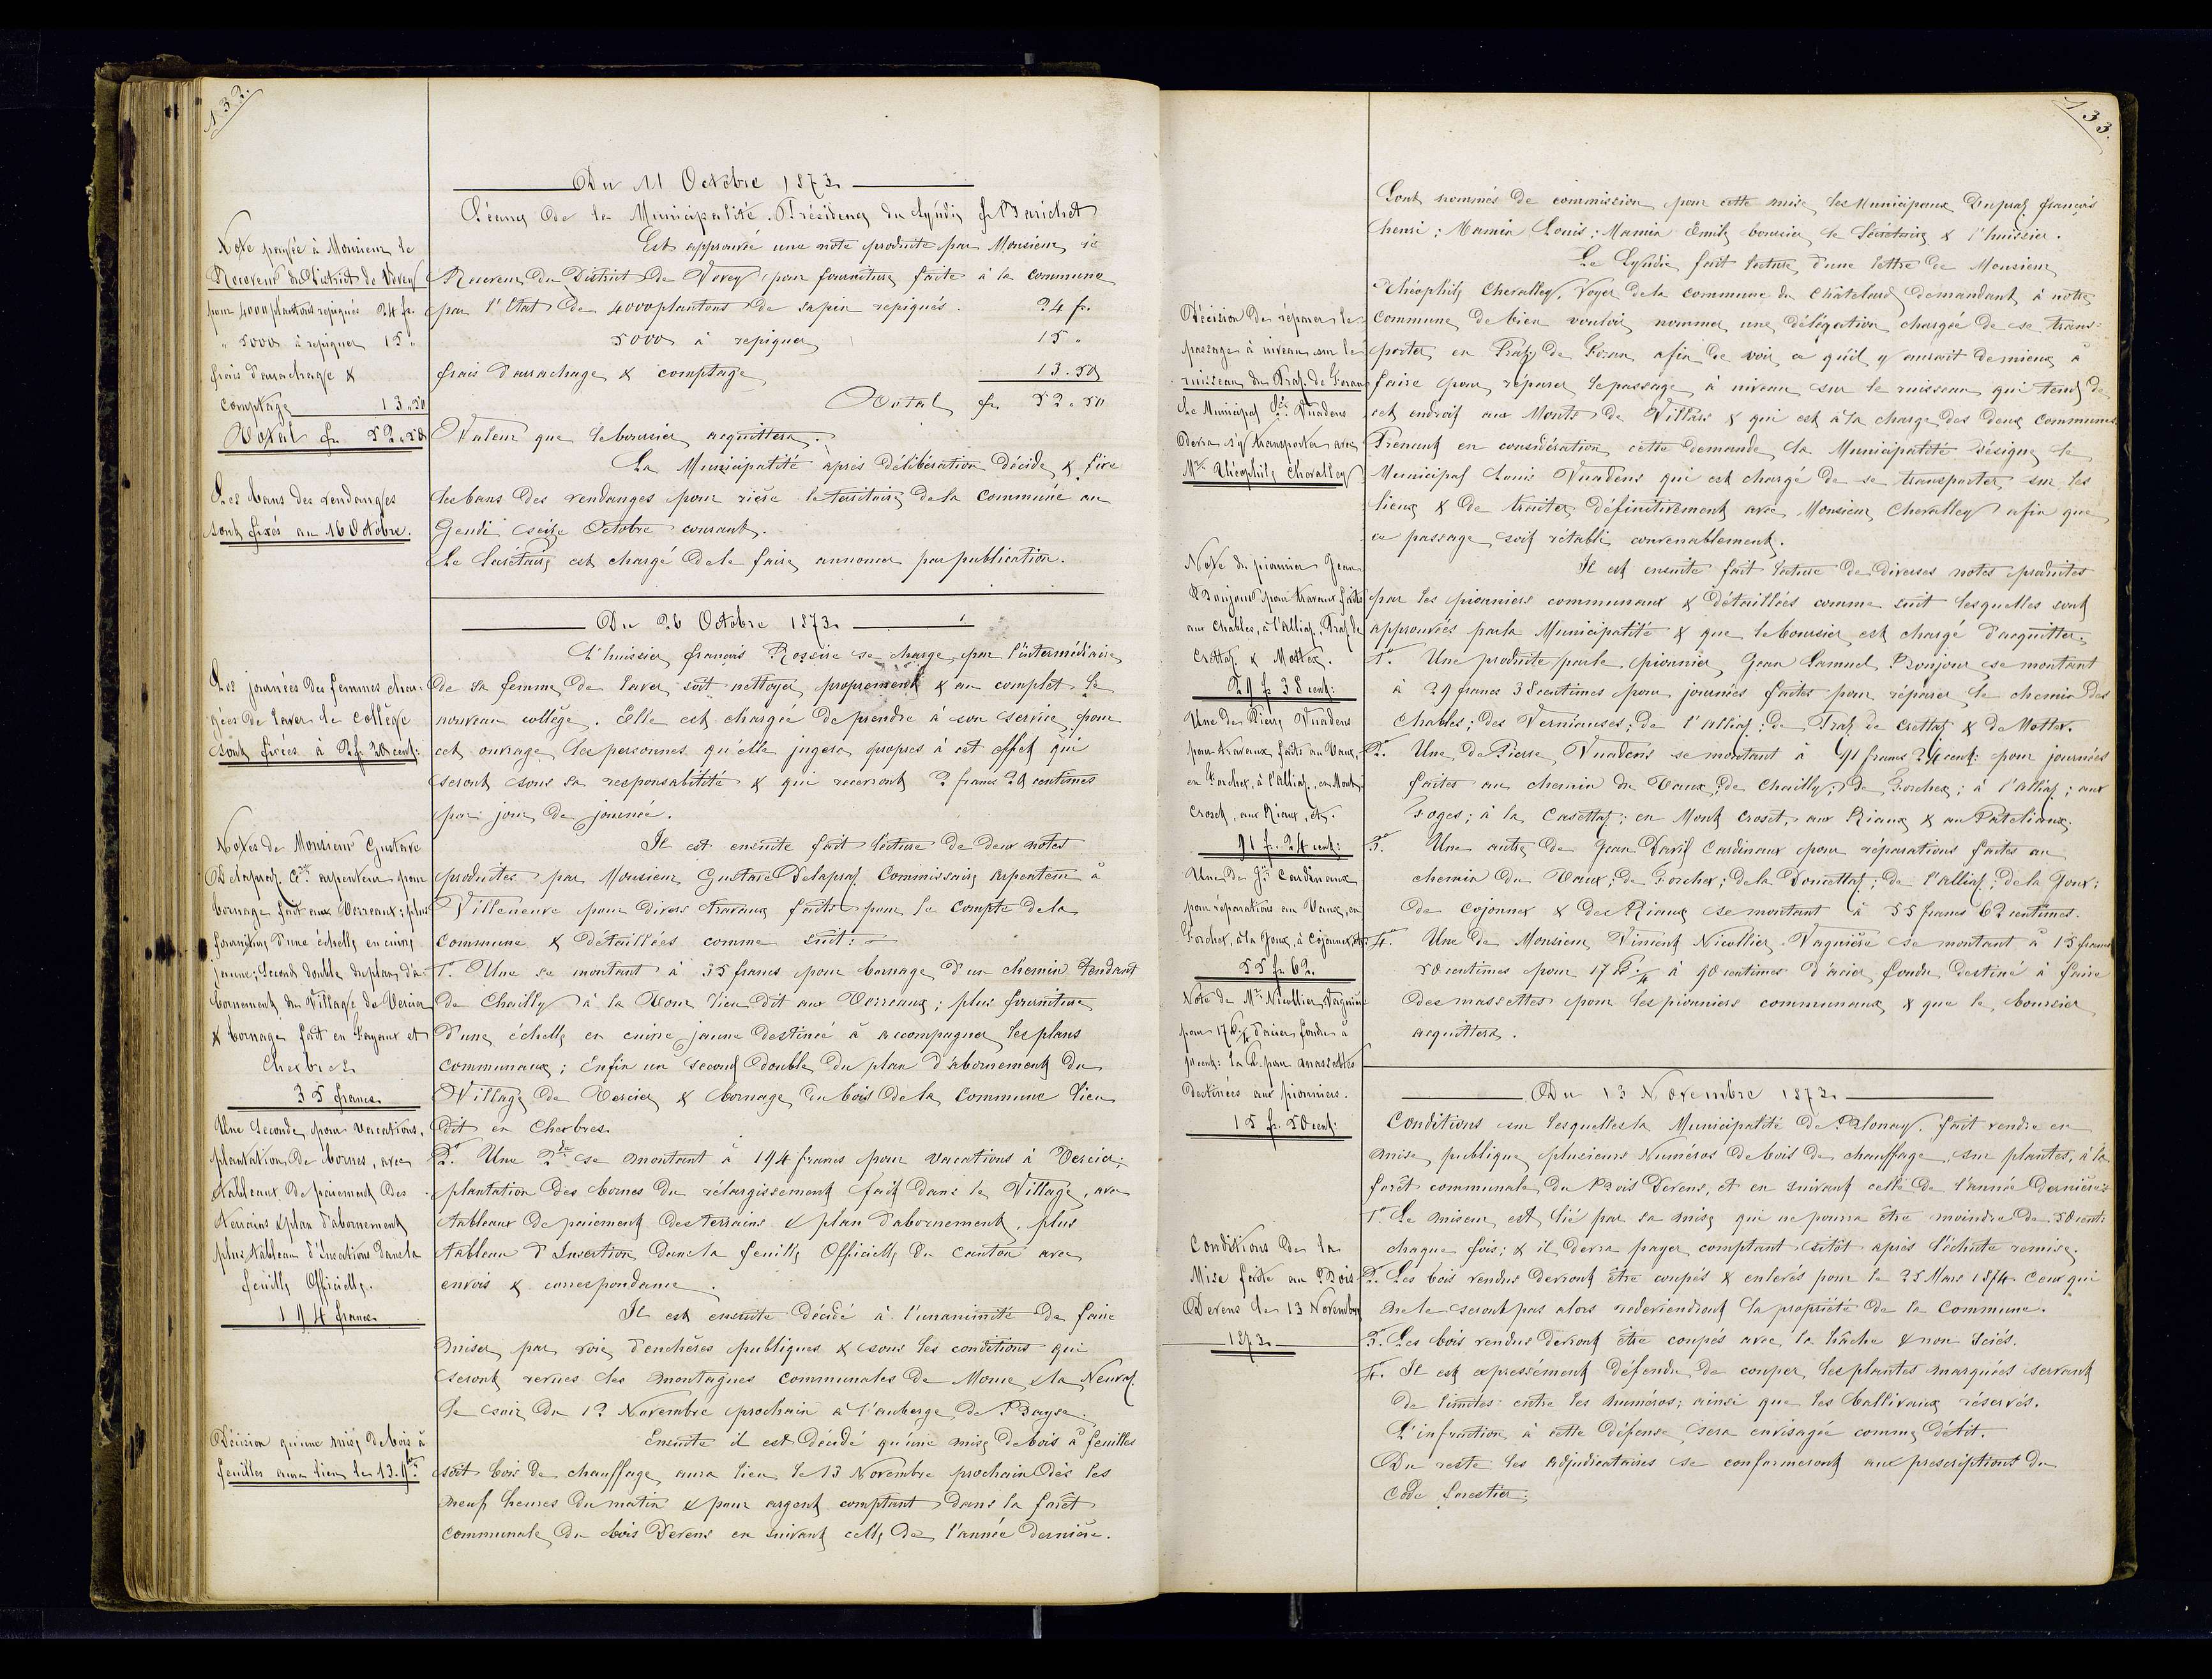 132.
Du 11 Octobre 1873.
Séance de la Municipalité. Présidence du Syndic fs Barichet
Note payée à Monsieur le
Receveur du District de Vevey
pour 4000 plantons repiqués 24 fr.
" 5000 à repiquer 15 "
frais d'arrachage &
comptage 13.50
Total fr. 52.50
Les bans des vendanges
sont fixés au 16 Octobre.
Est approuvée une note produite par Monsieur le
Receveur du District de Vevey pour fourniture faite à la commune
par l'Etat de 4000 plantons de sapin repiqués. 24 fr.
5000 à repiquer 15 "
frais d'arrachage & comptage 13.50
Total fr. 52.50
Valeur que le boursier acquittera.
La Municipalité après délibération décide & fixe
les bans des vendanges pour rière le territoire de la Commune au
Jeudi seize Octobre courant.
Le Secrétaire est chargé de le faire annoncer par publication.
Du 26 Octobre 1873.
Les journées des femmes char-
gées de laver le Collège
sont fixées à 2 f. 20 cent:
Notes de Monsieur Gustave
Delapraz Cre arpenteur pour
bornage fait aux Verreaux; plus
fourniture d'une échelle en cuivre
jaune; second double du plan d'a-
bornement du Village de Vercier
& bornage fait en Fayaux et
Cherbres
35 francs.
Une Seconde pour vacations,
plantation de bornes, avec
tableaux de paiement des
terrains & plan d'abornement
plus tableau d'Insertions dans la
feuille Officielle.
194 francs.
Décision qu'une mise de bois à
feuilles aura lieu le 13. 9bre
L'huissier françois Rossire se charge, par l'intermédiaire
de sa femme, de laver soit nettoyer proprement & au complet le
nouveau collège. Elle est chargée de prendre à son service pour
cet ouvrage les personnes qu'elle jugera propres à cet effet qui
seront sous sa responsabilité & qui recevront 2 francs 20 centimes
par jour de journée.
Il est ensuite fait lecture de deux notes
produites par Monsieur Gustave Delapraz Commissaire arpenteur à
Villeneuve pour divers travaux faits pour le compte de la
commune & détaillées comme suit:
1o. Une se montant à 35 francs pour bornage d'un chemin tendant
de Chailly à la Tour lieu dit aux Verreaux; plus fourniture
d'une échelle en cuivre jaune destinée à accompagner les plans
communaux; Enfin un second double du plan d'abornement du
Village de Vercier & bornage du bois de la Commune lieu
dit en Cherbres.
2o. Une 2de se montant à 194 francs pour vacations à Vercier;
plantation des bornes du rélargissement fait dans le Village, avec
tableaux de paiement des terrains & plan d'abornement, plus
tableau d'Insertion dans la feuille Officielle du canton avec
envois & correspondance.
Il est ensuite décidé à l'unanimité de faire
miser par voie d'enchères publiques & sous les conditions qui
seront revues les montagnes communales de & la Neuvaz
le soir du 12 Novembre prochain à l'auberge de Bayse.
Ensuite il est décidé qu'une mise de bois à feuilles
soit bois de chauffage aura lieu le 13 Novembre prochain dès les
neuf heures du matin & pour argent comptant dans la forêt
communale du bois Devens en suivant celle de l'année dernière.
133.
Sont nommés de commission pour cette mise, les Municipaux Dupraz françois
henri; Mamin Louis; Mamin Emile boursier, le Secrétaire & l'huissier.
Le Syndic fait lecture d'une lettre de Monsieur
Théophile Chevalley, Voyer de la commune du Châtelard demandant à notre
Commune de bien vouloir nommer une délégation chargée de se trans-
porter en Praz de Foran afin de voir ce qu'il y aurait de mieux à
faire pour réparer le passage à niveau sur le ruisseau qui tend de
cet endroit aux Monts de Villars & qui est à la charge des deux communes.
Prenant en considération cette demande, la Municipalité désigne le
Municipal Louis Vuadens qui est chargé de se transporter sur les
lieux & de traiter définitivement avec Monsieur Chevalley afin que
ce passage soit rétabli convenablement.
Décision de réparer le
passage à niveau sur le
ruisseau du Praz de Foran
Le Municipal Ls Vuadens
devra s'y transporter avec
Mr Théophile Chevalley
Note du pionnier Jean
Bonjour pour travaux faits
aux Chables, à l'Alliaz, Praz de
Crettaz & Mottex.
29 fr 38 cent:
Une de Pierre Vuadens
pour travaux faits au Vaux,
en Forchex, à l'Alliaz, en Mont
Croset, aux Riaux, etc.
91 fr. 24 cent:
Une de Jn Cardinaux
pour réparations au Vaux, en
Forchex, à la Joux, à Cojonnex, etc.
55 fr. 62.
Note de Mr Nicollier Vagnière
pour 17 ℔ ¼ d'acier fondu à
90 cent: la ℔ pour massettes
destinées aux pionniers.
15 fr. 50 cent:
Il est ensuite fait lecture de diverses notes produites
par les pionniers communaux & détaillées comme suit lesquelles sont
approuvées par la Municipalité & que le boursier est chargé d'acquitter.
1o. Une produite par le pionnier Jean Samuel Bonjour se montant
à 29 francs 38 centimes pour journées faites pour réparer le chemin des
Chables; des Vernieuses; de l'Alliaz; de Praz de Crettaz & de Mottex.
2o. Une de Pierre Vuadens se montant à 91 francs 24 cent: pour journées
faites au chemin du Vaux; de Chailly; de Forchex; à l'Alliaz; aux
Foges; à la Casettaz; en Mont Croset, aux Riaux & au Pateliaux.
3o. Une autre de Jean David Cardinaux pour réparations faites au
chemin du Vaux; de Forchex; de la Doucettaz; de l'Alliaz; de la Joux;
de Cojonnex & des Riaux se montant à 55 francs 62 centimes.
4o. Une de Monsieur Vincent Nicollier Vagnière se montant à 15 francs
50 centimes pour 17 ℔ ¼ à 90 centimes d'acier fondu destiné à faire
des massettes pour les pionniers communaux & que le boursier
acquittera.
Du 13 Novembre 1873.
Conditions de la
Mise faite au Bois
Devens le 13 Novembre
1873.
Conditions sur lesquelles la Municipalité de Blonay, fait vendre en
mise publique, plusieurs Numéros de bois de chauffage, sur plantes, à la
forêt communale du Bois Devens, et en suivant celle de l'année dernière.
1o. Le miseur est lié par sa mise qui ne pourra être moindre de 50 cent:
chaque fois; & il devra payer comptant sitôt après l'échute remise.
2o. Les bois vendus devront être coupés & enlevés pour le 25 Mars 1874 Ceux qui
ne le seront pas alors redeviendront la propriété de la Commune.
3o. Les bois vendus devront être coupés avec la hâche & non sciés.
4o. Il est expressément défendu de couper les plantes marquées servant
de limites entre les numéros; ainsi que les ballivaux réservés.
L'infraction à cette défense, sera envisagée comme délit.
Du reste les adjudicataires se conformeront aux prescriptions du
Code forestier.